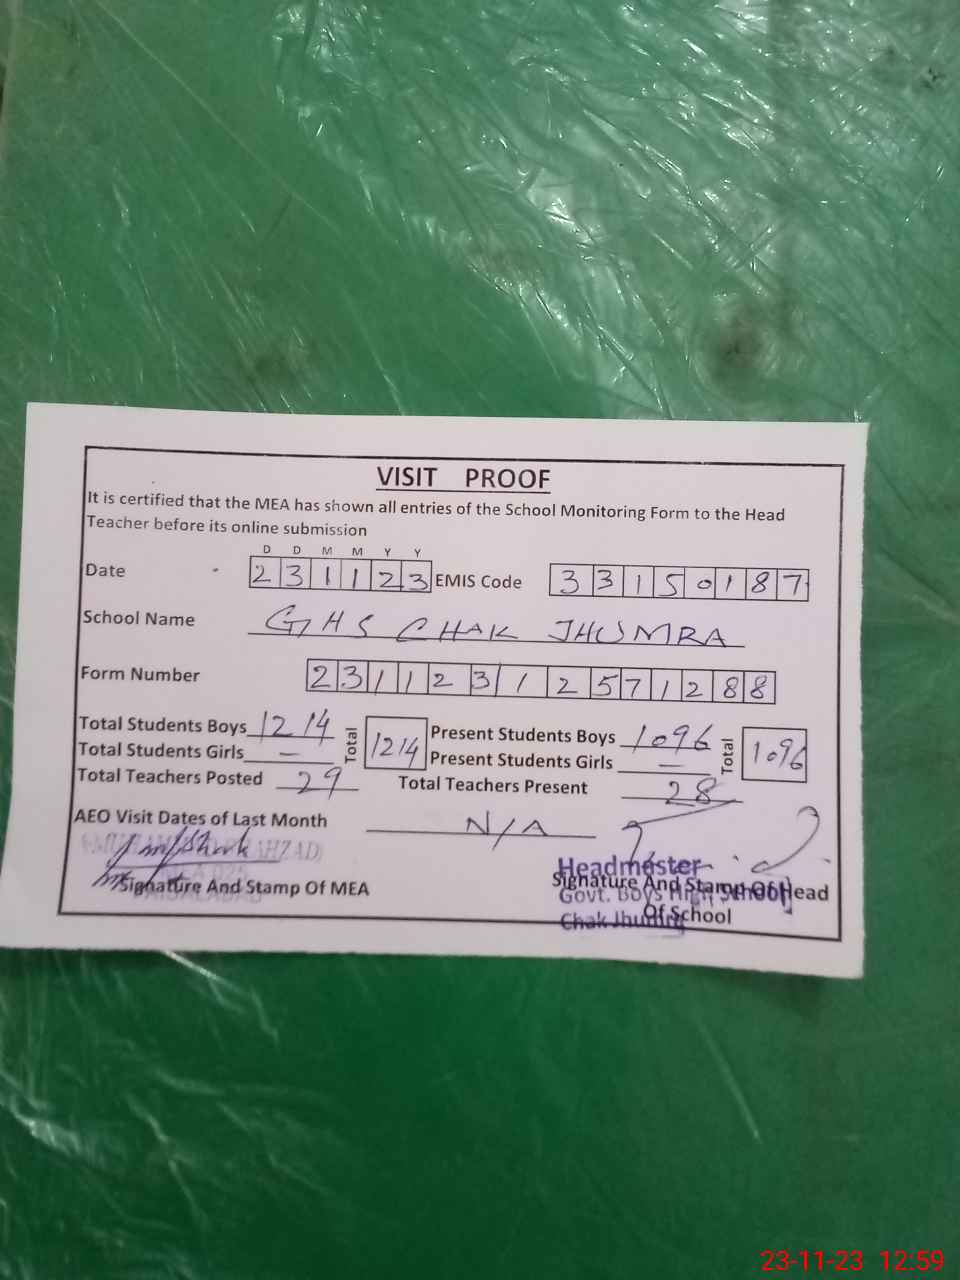 VISIT PROOF
It is certified that the MEA has shown all entries of the School Monitoring Form to the Head
Teacher before its online submission
D D M M Y Y
Date 2 3 1 1 2 3 EMIS Code 3 3 1 5 0 1 8 7
School Name GHS CHAK JHUMRA
Form Number 2 3 1 1 2 3 1 2 5 7 1 2 8 8
Total Students Boys 1214 Total 1214 Present Students Boys 1096 Total 1096
Total Students Girls — Present Students Girls —
Total Teachers Posted 29 Total Teachers Present 28
AEO Visit Dates of Last Month N/A
Signature And Stamp Of MEA
Headmaster
Signature And Stamp Of Head
Govt. Boys High School
Of School
Chak Jhumra
23-11-23 12:59